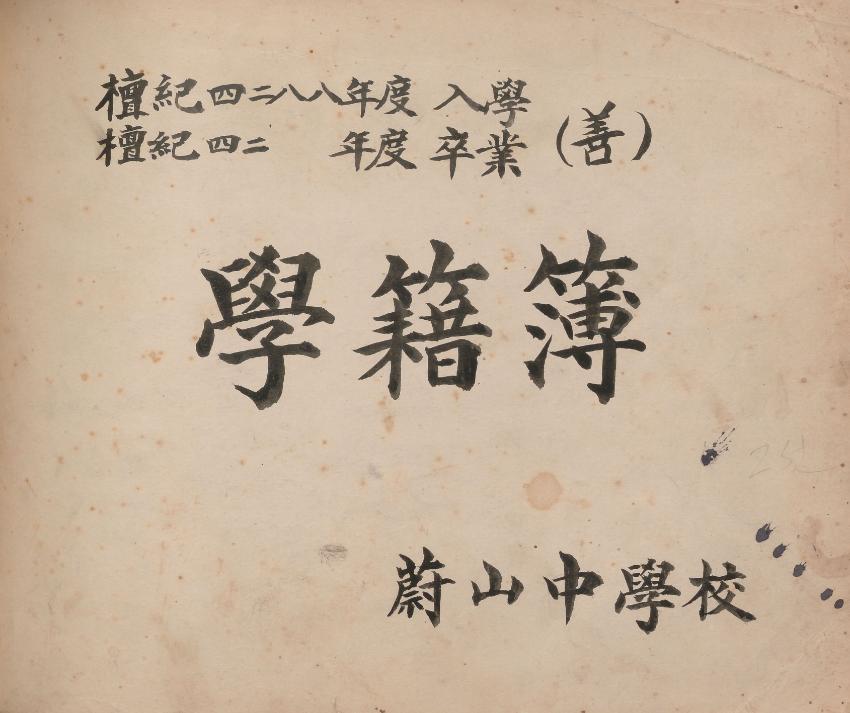 檀紀四二八八年度 入學
檀紀四二 年度 卒業 (善)
學籍簿
蔚山中學校